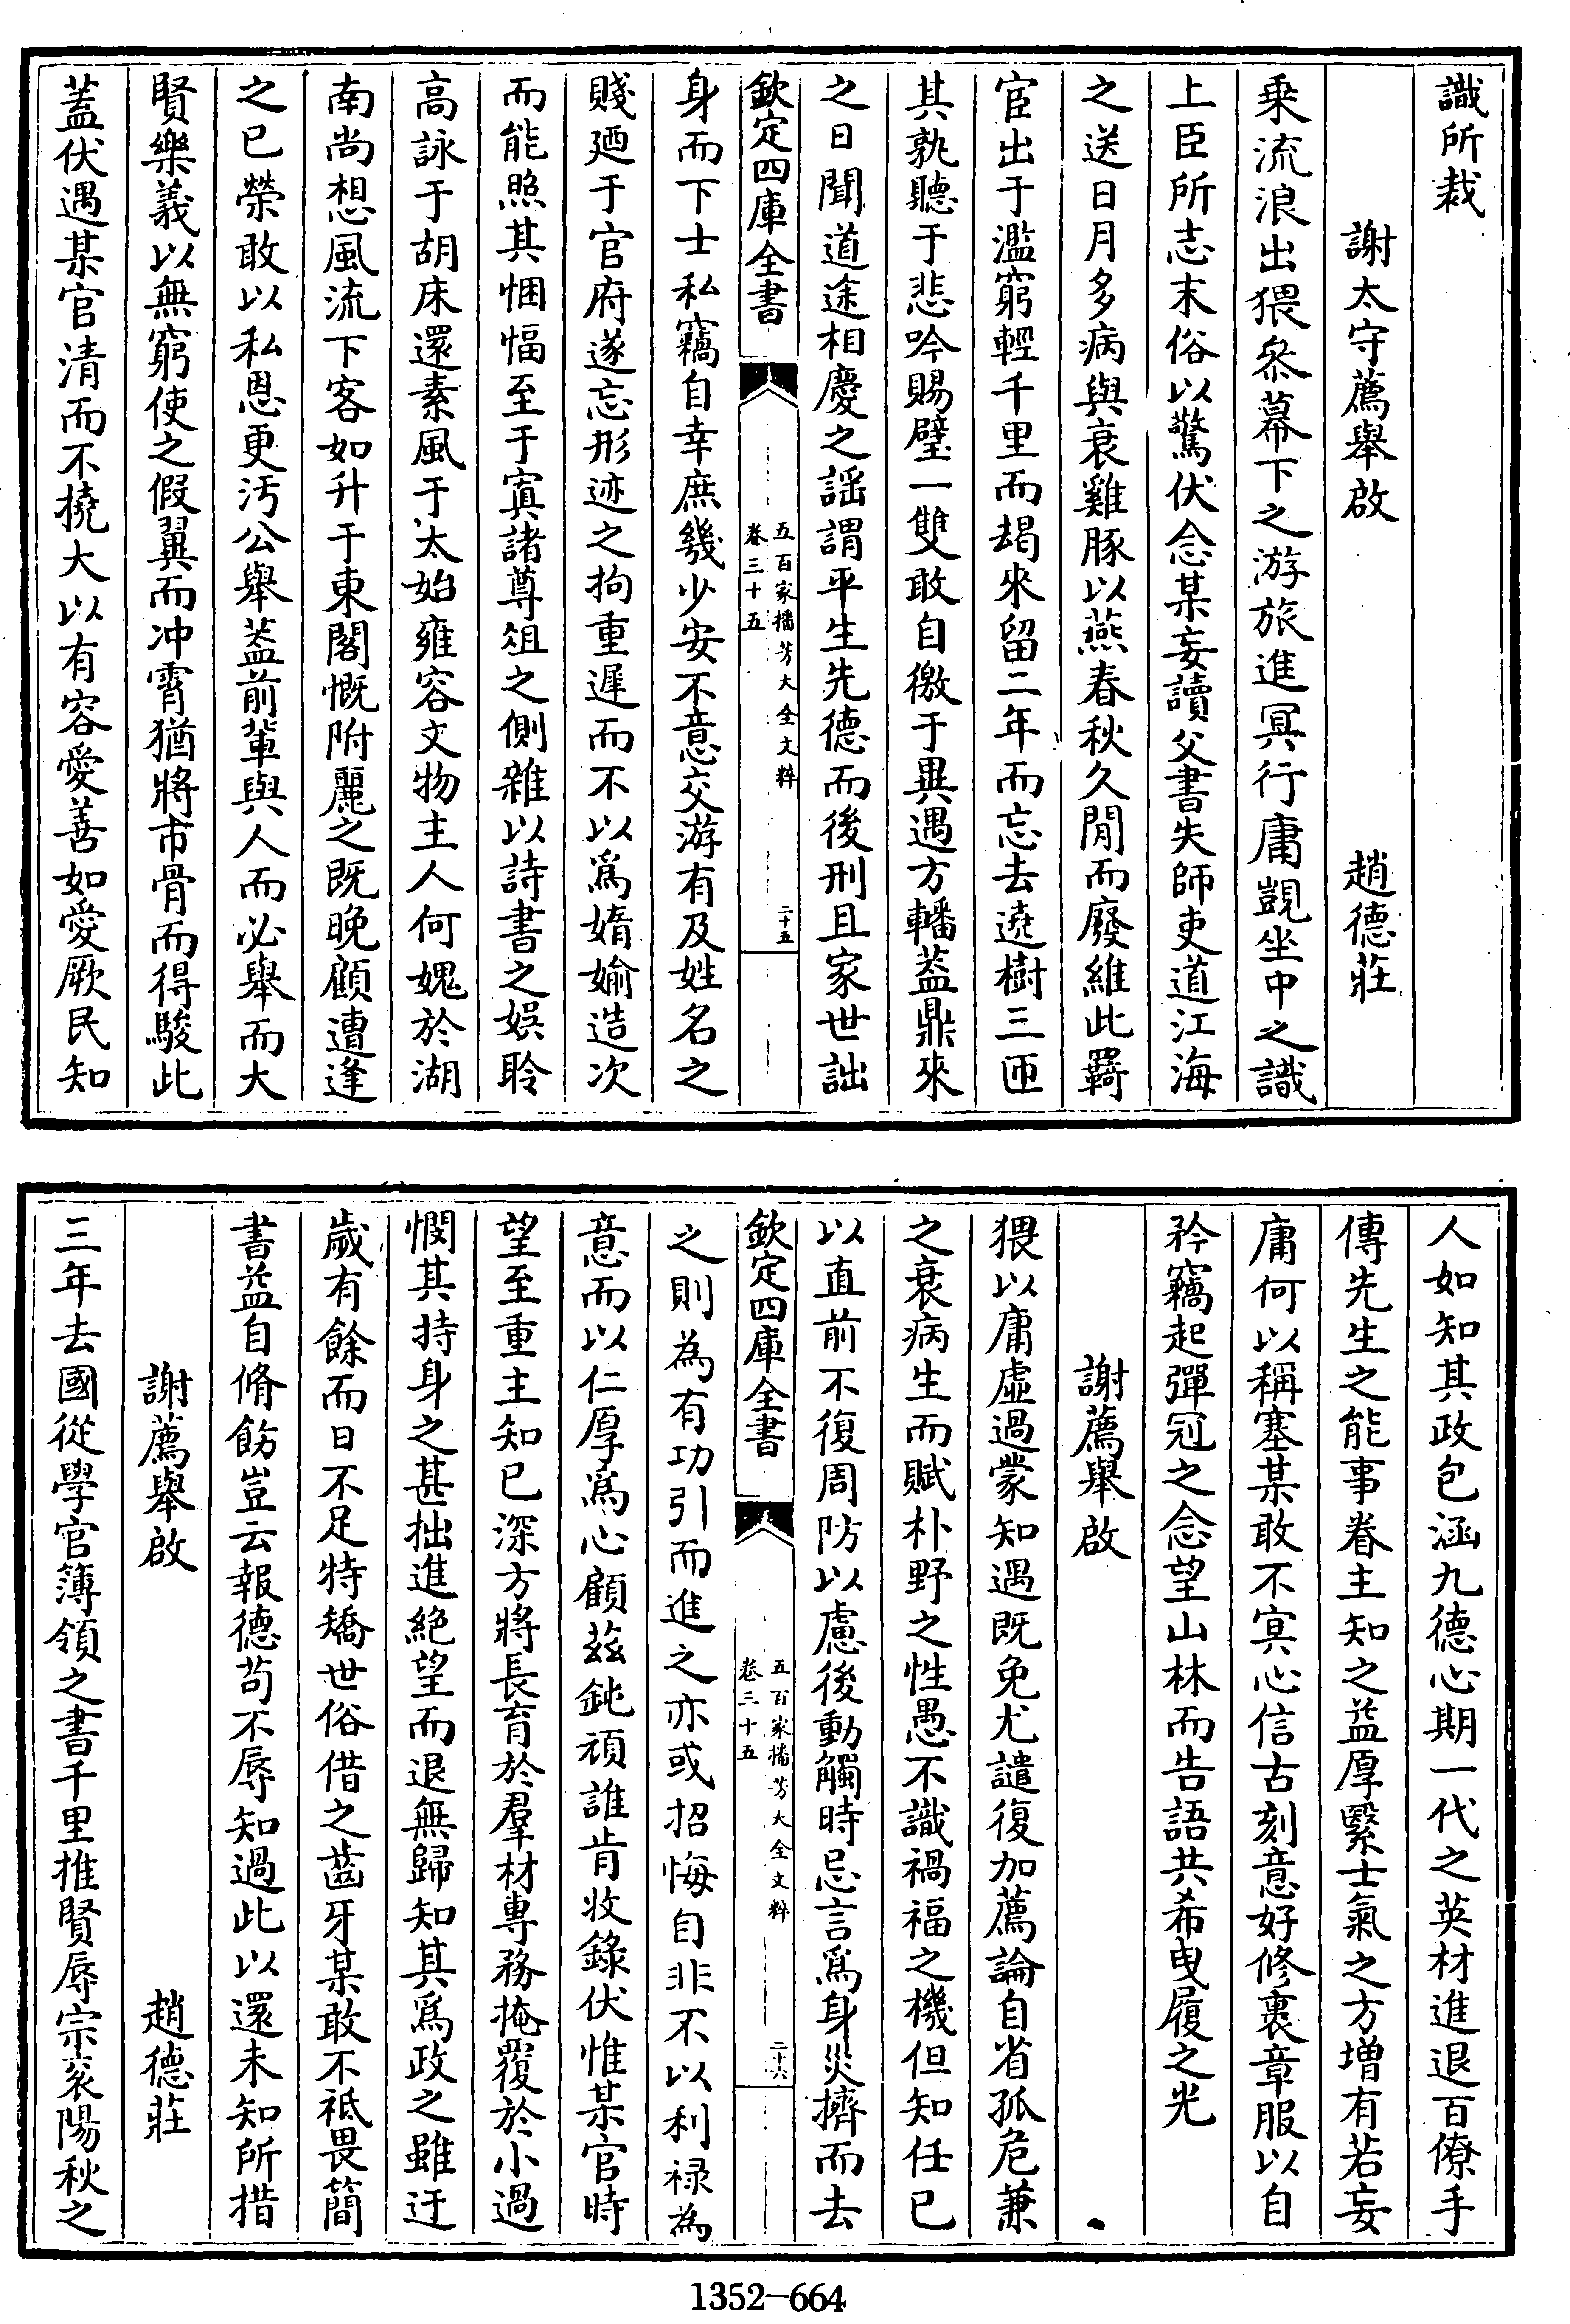 識所裁
謝太守薦舉啟　趙德莊
乘流浪出猥叅幕下之游旅進冥行庸覬坐中之識
上臣所志末俗以驚伏念某妄讀父書失師吏道江海
之送日月多病與衰雞豚以燕春秋久閒而廢維此羇
宦出于濫窮輕千里而朅來留二年而忘去遶樹三匝
其孰聽于悲吟賜璧一雙敢自徼于異遇方轓葢鼎來
之日聞道途相慶之謡謂平生先德而後刑且家世詘
欽定四庫全書
五百家播芳大全文粹
卷三十五
二十五
身而下士私竊自幸庶幾少安不意交游有及姓名之
賤廼于官府遂忘形迹之拘重遲而不以爲媠婾造次
而能照其悃愊至于寘諸尊俎之側雜以詩書之娛聆
高詠于胡床還素風于太始雍容文物主人何媿於湖
南尚想風流下客如升于東閣慨附麗之既晚顧遭逢
之已榮敢以私恩更汚公舉葢前輩與人而必舉而大
賢樂義以無窮使之假翼而冲霄猶將市骨而得駿此
蓋伏遇某官清而不撓大以有容愛善如愛厥民知
人如知其政包涵九德心期一代之英材進退百僚手
傳先生之能事眷主知之益厚緊士氣之方增有若妄
庸何以稱塞某敢不冥心信古刻意好修裏章服以自
矜竊起彈冠之念望山林而告語共希曳履之光
謝薦舉啟
猥以庸虛過蒙知遇既免尤譴復加薦論自省孤危兼
之衰病生而賦朴野之性愚不識禍福之機但知任已
以直前不復周防以慮後動觸時忌言爲身災擠而去
欽定四庫全書
五百家播芳大全文粹
卷三十五
二十六
之則為有功引而進之亦或招悔自非不以利禄為
意而以仁厚爲心顧茲鈍頑誰肯收錄伏惟某官時
望至重主知已深方將長育於羣材專務掩覆於小過
憫其持身之甚拙進絕望而退無歸知其爲政之雖迂
歲有餘而日不足特矯世俗借之齒牙某敢不祗畏簡
書益自脩飭豈云報德苟不辱知過此以還未知所措
謝薦舉啟　趙德莊
三年去國從學官簿領之書千里推賢辱宗衮陽秋之
1352-664